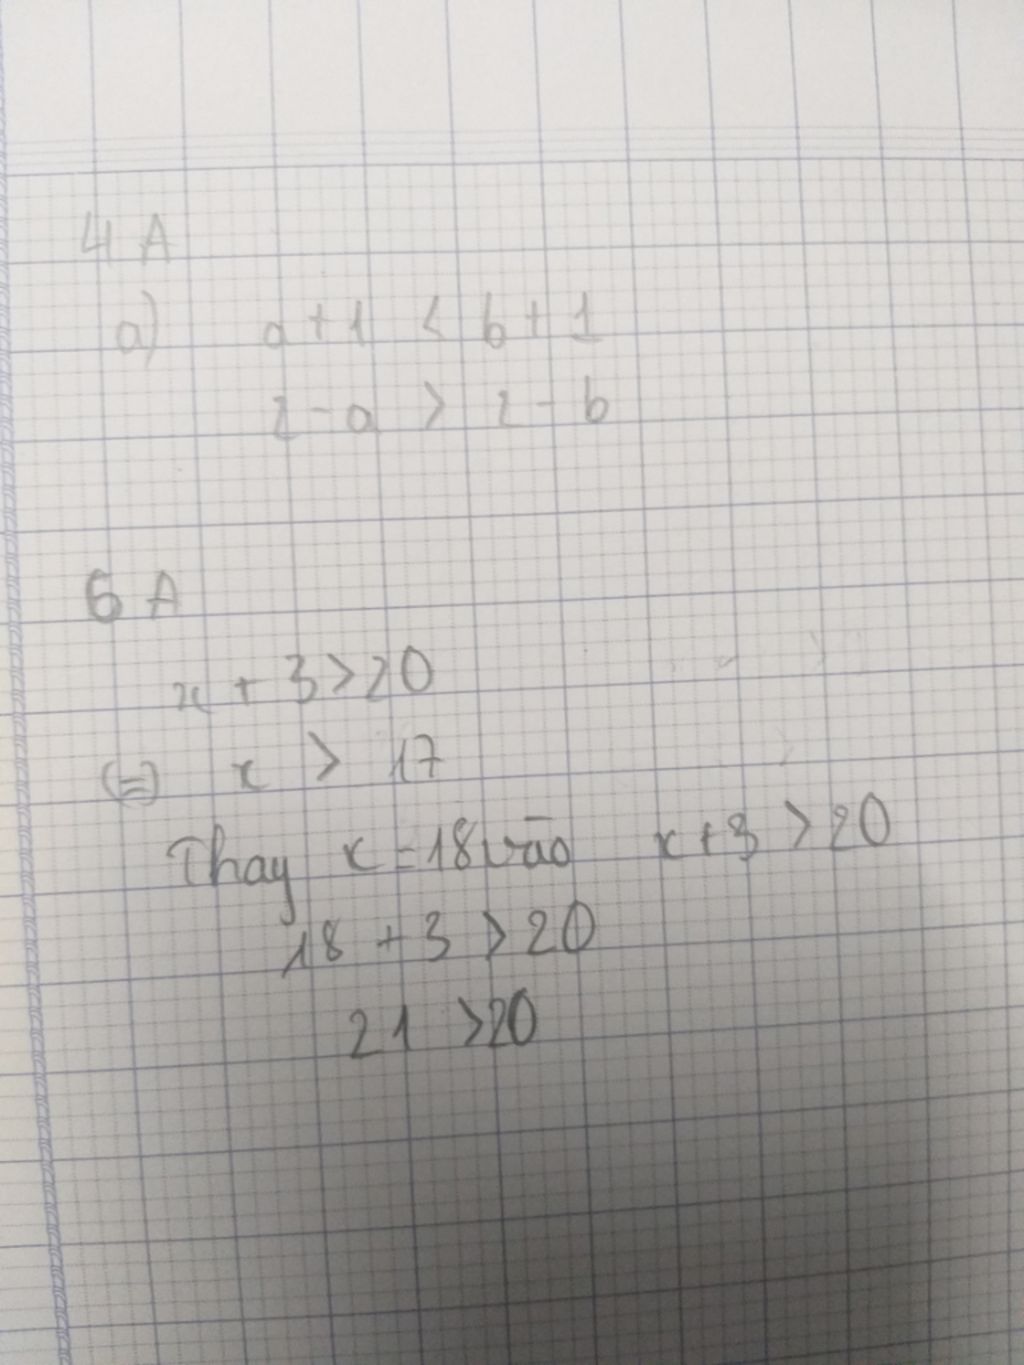 4 A
a) a + 1 < b + 1
2 - a > 2 - b
6 A
x + 3 > 20
(=) x > 17
Thay x = 18 vào x + 3 > 20
18 + 3 > 20
21 > 20